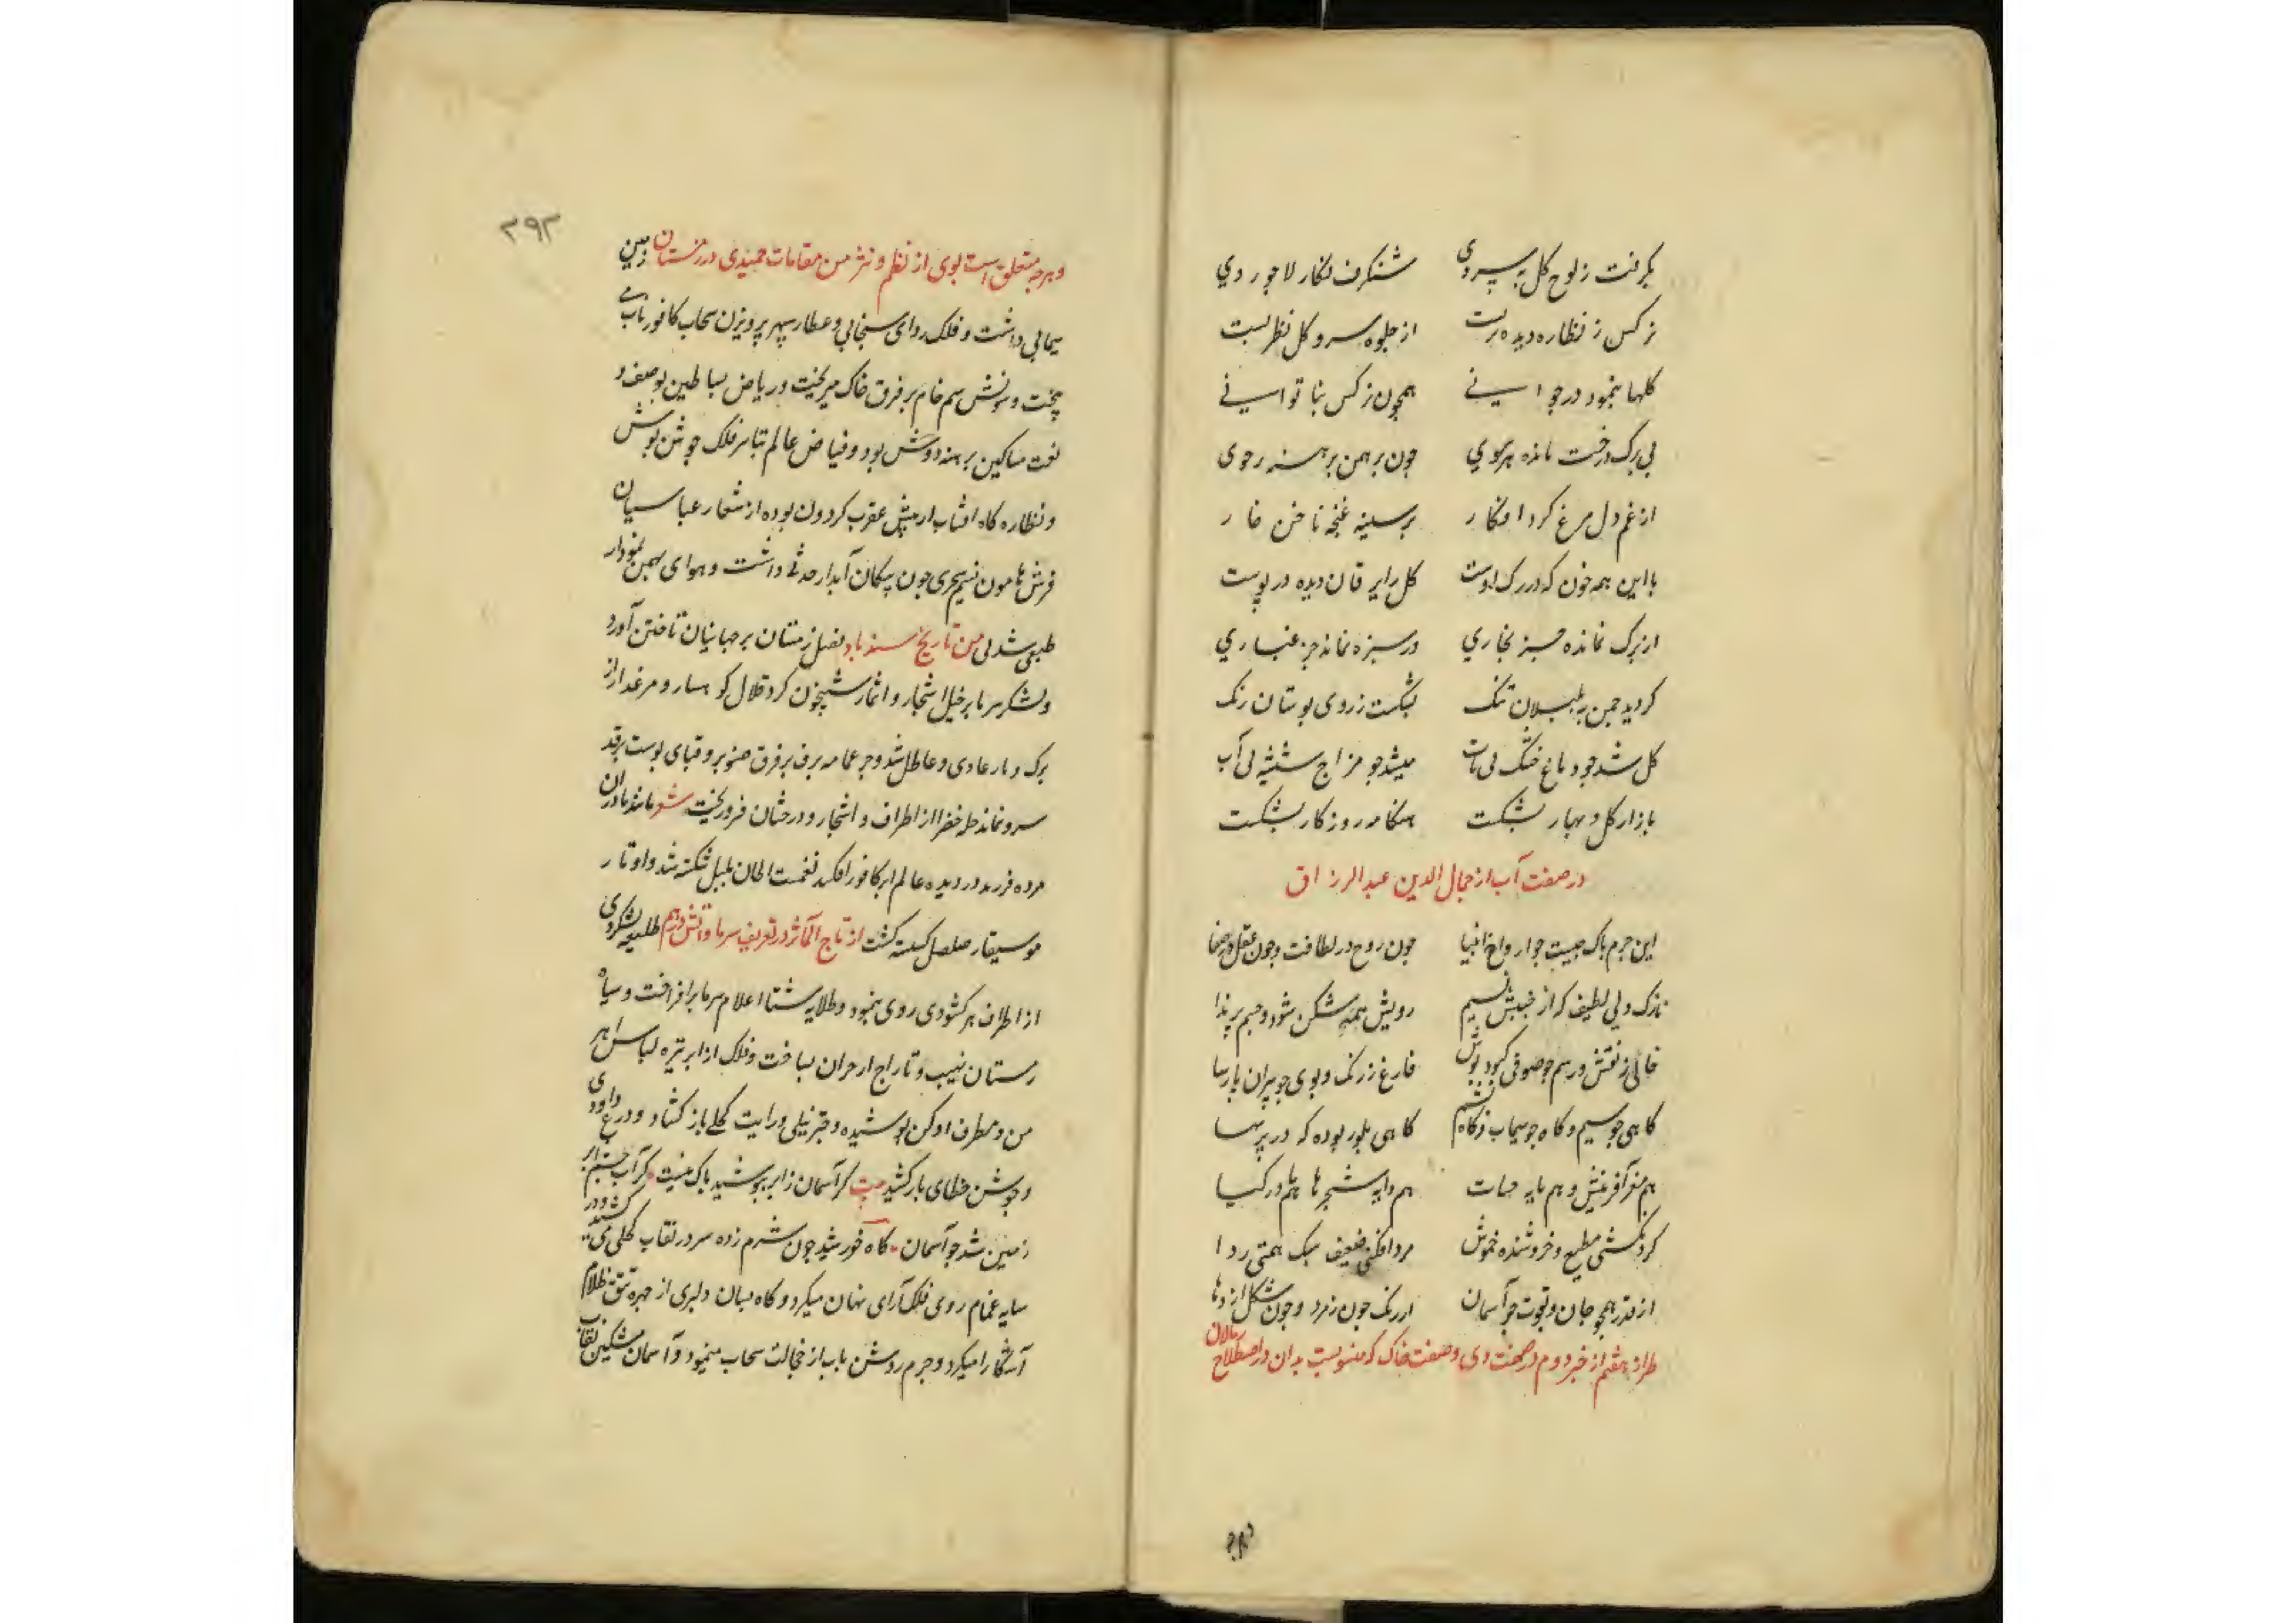 بگرفت ز لوح گل به پیروی شنگرف نگار لاجوردی
نرکس ز نظاره دیده بربست از جلوه سرو کل نظر بست
کلها بنمود در جوانی همچون نرکس بناتوانی
بی برک درخت مانده هر سوی چون برهمن برهنه رجوی
از غم دل مرغ کرد افکار بر سینه غنچه ناخن خار
با این همه خون که در رک اوست کل را یرقان دیده در پوست
از برک نمانده جز نجاری در سبزه نمانده جز غباری
کردید چمن به بلبلان تنک بشکست ز روی بوستان رنک
کل شد چو دماغ خشک بی تاب میشد چو مزاج شیشه بی آب
بازار کل و بهار بشکست هنکامه روزکار بشکست
در صفت آب از جمال الدین عبد الرزاق
این جرم پاک چیست چو ارواح انبیا چون روح در لطافت و چون عقل در صفا
نازک دلی لطیف که از جنبش نسیم رویش همه شکن شود و جسم پر
خالی ز نقش و رسم چو صوفی کبود پوش فارغ ز رنک و بوی چو پیران پارسا
کاهی چو سیم و کاه چو سیماب و کاه یشم کاهی بلور بوده که در
هم مغز آفرینش و هم مایه حیات هم دایه شجرها هم مادر کیا
کردنکشی مطیع و خروشنده خموش مرد افکنی ضعیف سبک همتی ردا
از قدر همچو جان و بقوت چو آسمان از رنک چون زمرد و چون شکل اژدها
طراز هفتم از خبر دوم در صفت دی و صفت خاک که منسوبست بدان در اصطلاح رمالان
۲۹۳
و هرچه متعلق است بوی از نظم و نثر من مقامات حمیدی در زمستان زمین
سیمابی داشت و فلک ردای سنجابی و عطار سپهر پرویزن سحاب کافور ناب می
بیخت و سونش سیم خام بر فرق خاک میریخت و ریاض بساطین بوصف و
نعت مساکین برهنه دوش بود و فیاض عالم تباسر فلک جوشن پوش
و نظاره کاه افتاب از نیش عقرب کردون بوده از شعار عباسیان
فرش هامون نسیم سحری چون پیکان آبدار حدثی داشت و هوای بهمن نمودار
طبعی شدلی من تاریخ سندباد فصل زمستان بر جهانیان تاختن آورد
و لشکر سرما بر خیل اشجار و اثمار شبیخون کرد قلال کوهسار و مرغزار از
برک و بار عادی و عاطل شد و جز عمامه برف بر فرق صنوبر و قبای پوست بر قد
سرو نماند حله خضرا از اطراف و اشجار و درختان فرو ریخت شعر مانند مادران
مرده فرزند در دیده عالم ابر کافور افکند نغمت الحان بلبل شکسته شد و اوتار
موسیقار صلصل کسسته کشت از تاج المآثر در تعریف سرما و آتش درهم طلیعه لشکر دی
از اطراف هر کشوری روی بنمود و طلایه شتا اعلام سرما برافراخت و سپاه
زمستان نهیب و تاراج از خزان بساخت و فلک از ابر تیره لباس راهبر
من و مطرف ادکن پوشیده و چتر نیلی و رایت کحلی باز کشاد و درع داودی
و جوشن خطای بار کشید بیت کر آسمان ز ابر بپوشید باک نیست کز آب چشم ابر
زمین شد چو آسمان کاه خورشید چون شرم زده سر در نقاب کحلی می کشید و در
سایه غمام روی فلک آرای نهان میکرد و کاه بسان دلبری از چهره تتق ظلام
آشکارا میکرد و جرم روشن باب از خجالت سحاب مینمود و آسمان مشکین نقاب